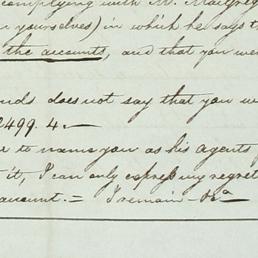 complying with Mr. MacGreg
yourselves) in which he says t
the accounts, and that you wer
nds does not say that you w
2499. 4. —
to name you as his agents
it, I can only express my regre
account. = I remain &ca